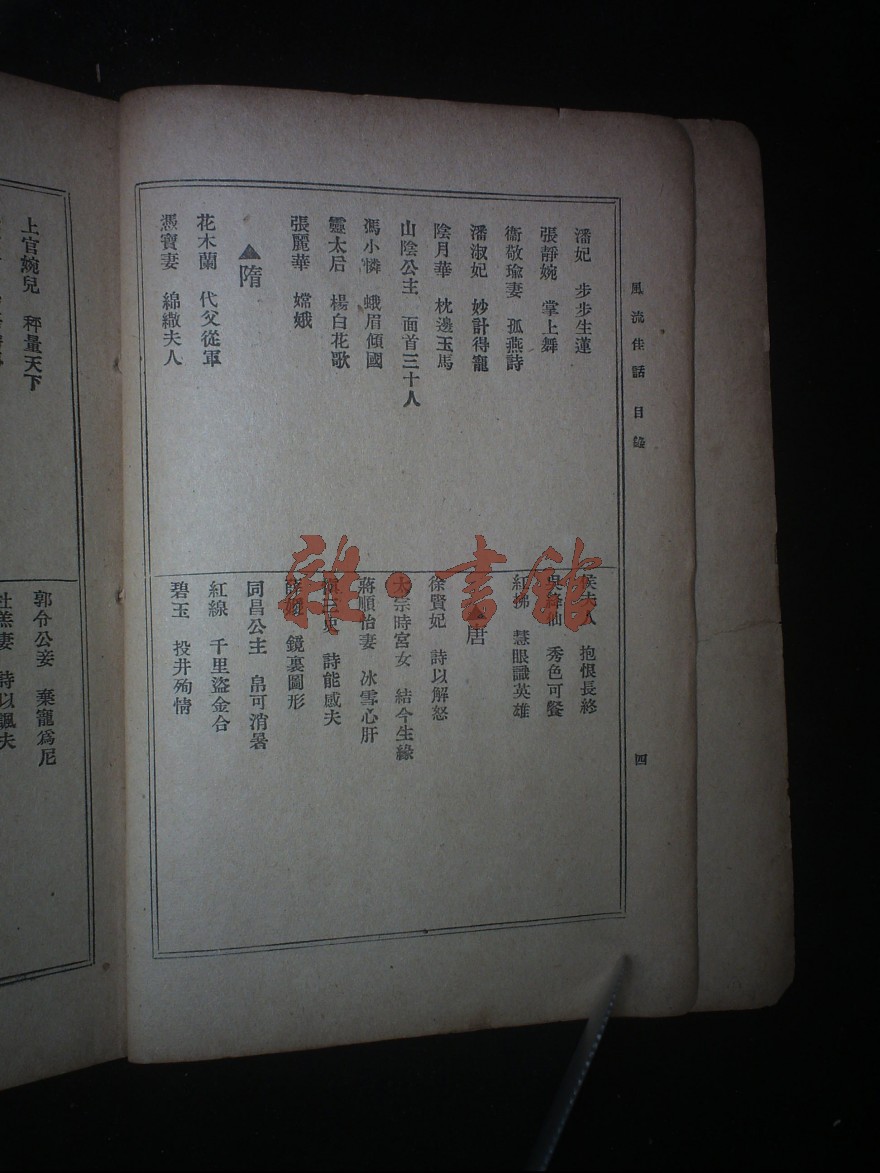 風流佳話目錄
四
潘妃　步步生蓮
張靜婉　掌上舞
衞敬瑜妻　孤燕詩
潘淑妃　妙計得寵
陰月華　枕邊玉馬
山陰公主　面首三十人
馮小憐　蛾眉傾國
靈太后　楊白花歌
張麗華　嫦娥
▲隋
花木蘭　代父從軍
馮寶妻　錦繖夫人
侯夫人　抱恨長終
吳絳仙　秀色可餐
紅拂　慧眼識英雄
▲唐
徐賢妃　詩以解怒
太宗時宮女　結今生緣
蔣順怡妻　冰雪心肝
詩能感夫
薛媛　鏡裏圖形
同昌公主　帛可消暑
紅線　千里盜金合
碧玉　投井殉情
上官婉兒　秤量天下
郭令公妾　棄寵爲尼
杜羔妻　詩以諷夫
雜·書館